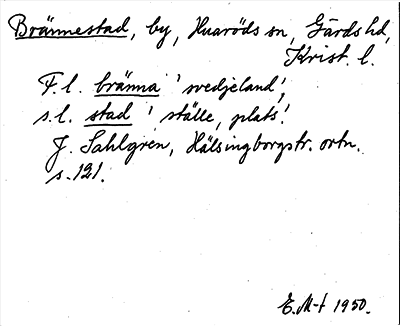 Brännestad, by, Huaröds sn, Gärds hd,
Krist. l.
F.l. bränna 'svedjeland',
s.l. stad 'ställe, plats'.
J. Sahlgren, Hälsingborgstr. ortn.
s. 121.
E.M-t 1950.